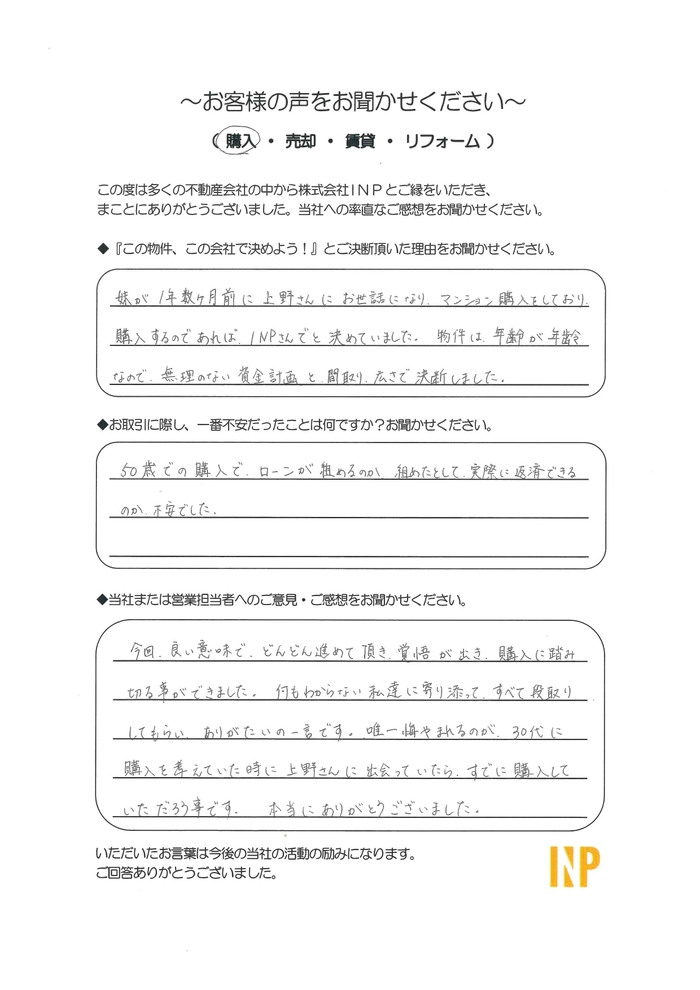 ～お客様の声をお聞かせください～
（ 購入 ・ 売却 ・ 賃貸 ・ リフォーム ）
この度は多くの不動産会社の中から株式会社ＩＮＰとご縁をいただき、
まことにありがとうございました。当社への率直なご感想をお聞かせください。
◆『この物件、この会社で決めよう！』とご決断頂いた理由をお聞かせください。
妹が1年数ヶ月前に上野さんにお世話になり、マンション購入をしており、
購入するのであれば、INPさんでと決めていました。 物件は、年齢が年齢
なので、無理のない資金計画と、間取り、広さで決断しました。
◆お取引に際し、一番不安だったことは何ですか？お聞かせください。
50歳での購入で、ローンが組めるのか 組めたとして、実際に返済できる
のか、不安でした。
◆当社または営業担当者へのご意見・ご感想をお聞かせください。
今回、良い意味で、どんどん進めて頂き、覚悟が出き、購入に踏み
切る事ができました。 何もわからない私達に寄り添って、すべて段取り
してもらい、ありがたいの一言です。唯一悔やまれるのが、30代に
購入を考えていた時に上野さんに出会っていたら、すでに購入して
いただろう事です。 本当にありがとうございました。
いただいたお言葉は今後の当社の活動の励みになります。
ご回答ありがとうございました。
INP